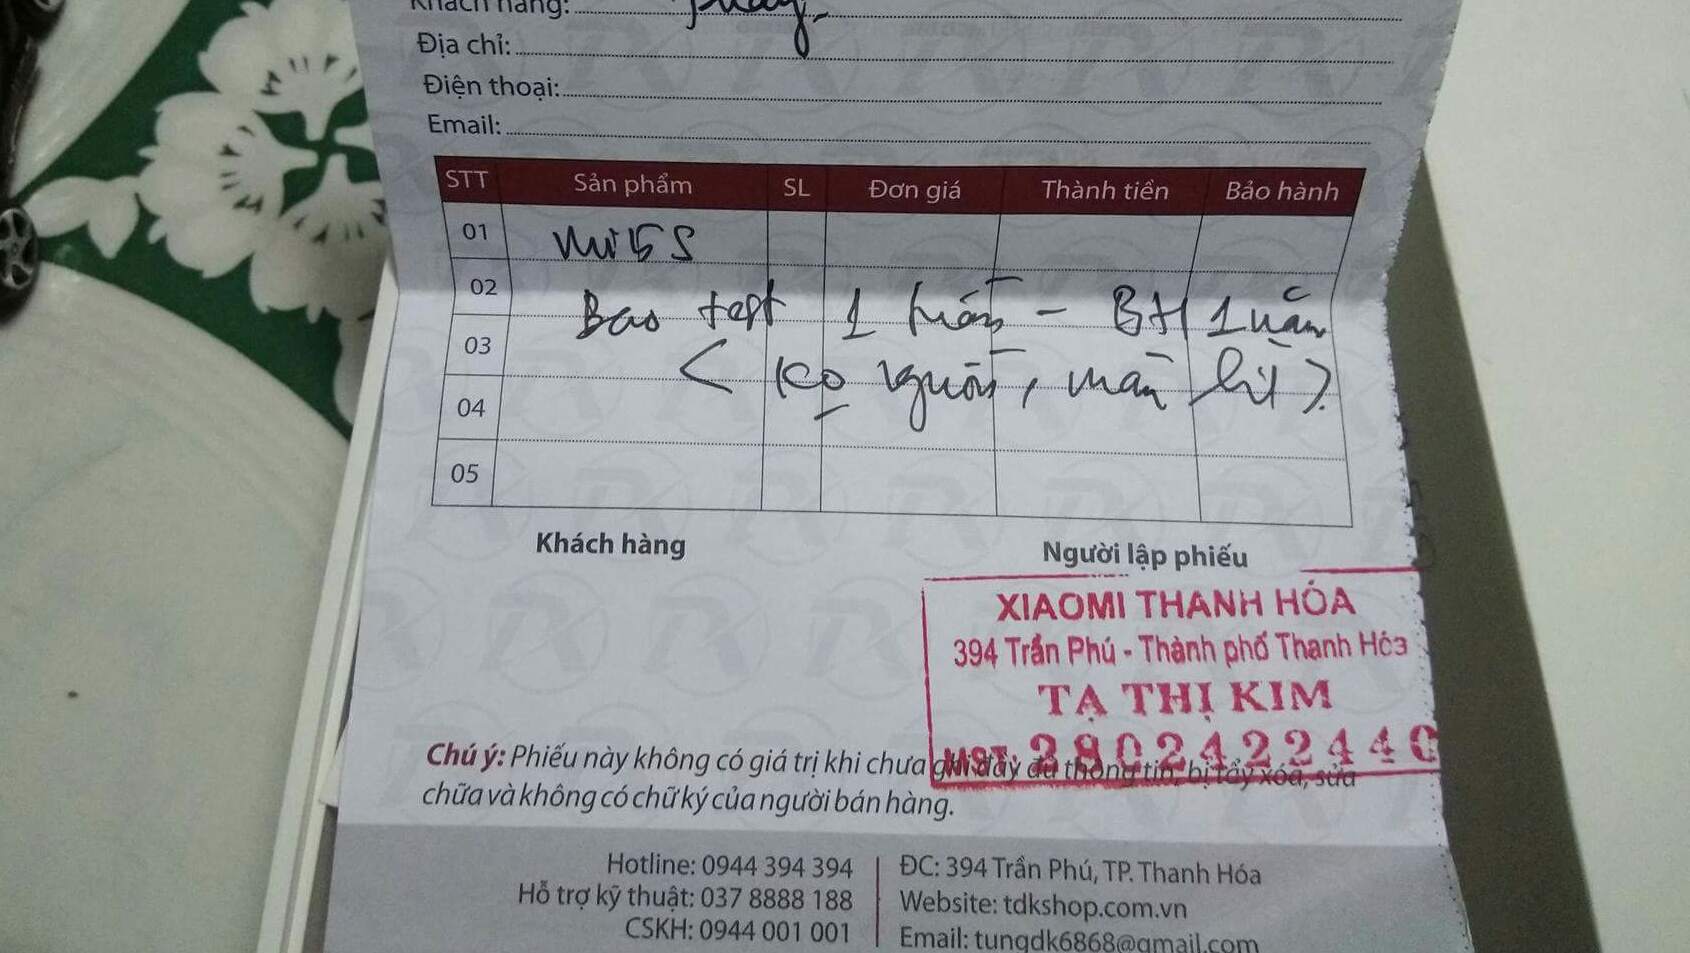 Khách hàng:
Địa chỉ:
Điện thoại:
Email:
STT Sản phẩm SL Đơn giá Thành tiền Bảo hành
01 Mi 5S
02 Bao test 1 - BH 1 năm
03 < ko nguồn, màn >
04
05
Khách hàng Người lập phiếu
XIAOMI THANH HÓA
394 Trần Phú - Thành phố Thanh Hóa
TẠ THỊ KIM
MST: 2802422440
Chú ý: Phiếu này không có giá trị khi chưa ghi đầy đủ thông tin, bị tẩy xóa, sửa
chữa và không có chữ ký của người bán hàng.
Hotline: 0944 394 394
Hỗ trợ kỹ thuật: 037 8888 188
CSKH: 0944 001 001
ĐC: 394 Trần Phú, TP. Thanh Hóa
Website: tdkshop.com.vn
Email: tungdk6868@gmail.com